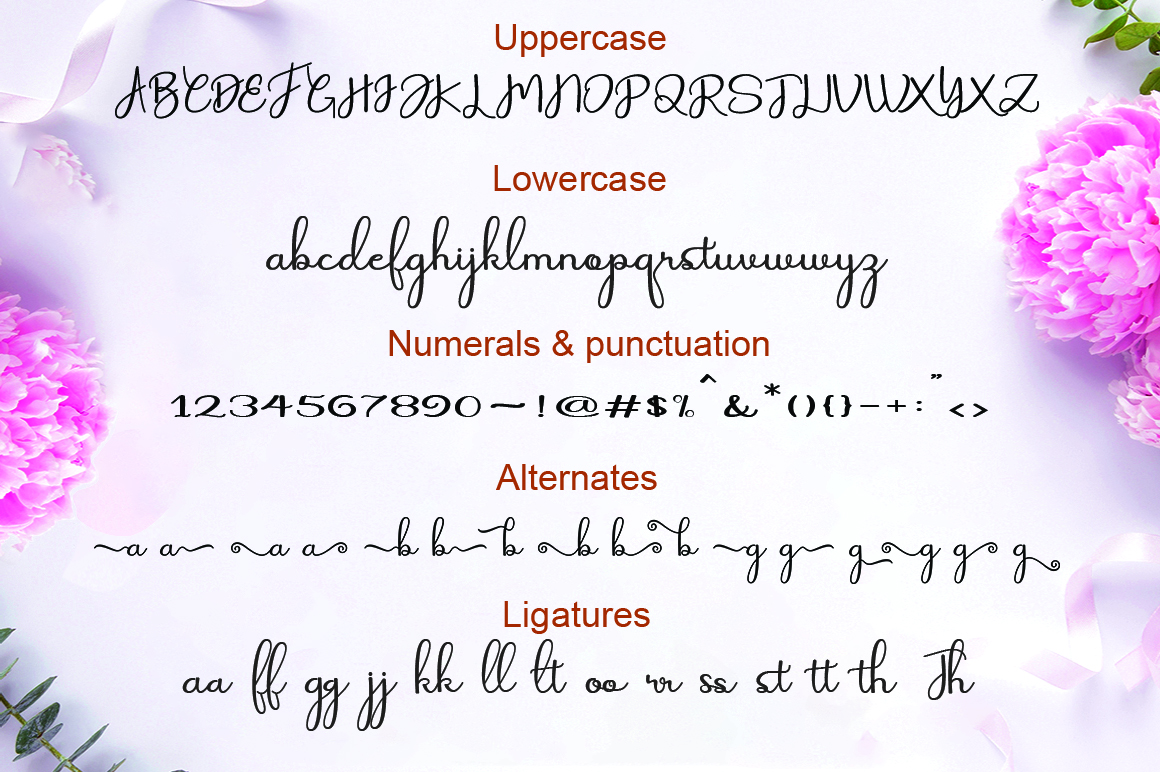 Uppercase
ABCDEFGHIJKLMNOPQRSTUVWXYXZ
Lowercase
abcdefghijklmnopqrstuvwwyz
Numerals & punctuation
1234567890~!@#$%^&*(){}-+:"<>
Alternates
a a a a b b b b b b g g g g g g
Ligatures
aa ff gg jj kk ll lt oo rr ss st tt th Th